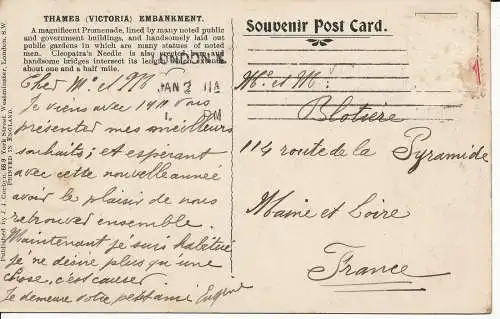 THAMES (VICTORIA) EMBANKMENT.
A magnificent Promenade, lined by many noted public
and government buildings, and handsomely laid out
public gardens in which are many statues of noted
men. Cleopatra's Needle is also erected here and
handsome bridges intersect its length which extends
about one and a half mile.
Published by J. J. Corbyn, 68a York Street, Westminster, London, S.W.
PRINTED IN ENGLAND.
LONDON. W
JAN 2 11
PM
Cher Mr et M
Je viens avec 1911 vous
présenter mes meilleurs
souhaits; et espérant
avec cette nouvelle année
avoir le plaisir de nous
retrouver ensemble.
Maintenant je suis habitué
je ne désire plus qu'une
chose, c'est causer
Je demeure votre petit ami Eugène
Souvenir Post Card.
Mr et M:
Blotière
114 route de la Pyramide
Maine et Loire
France